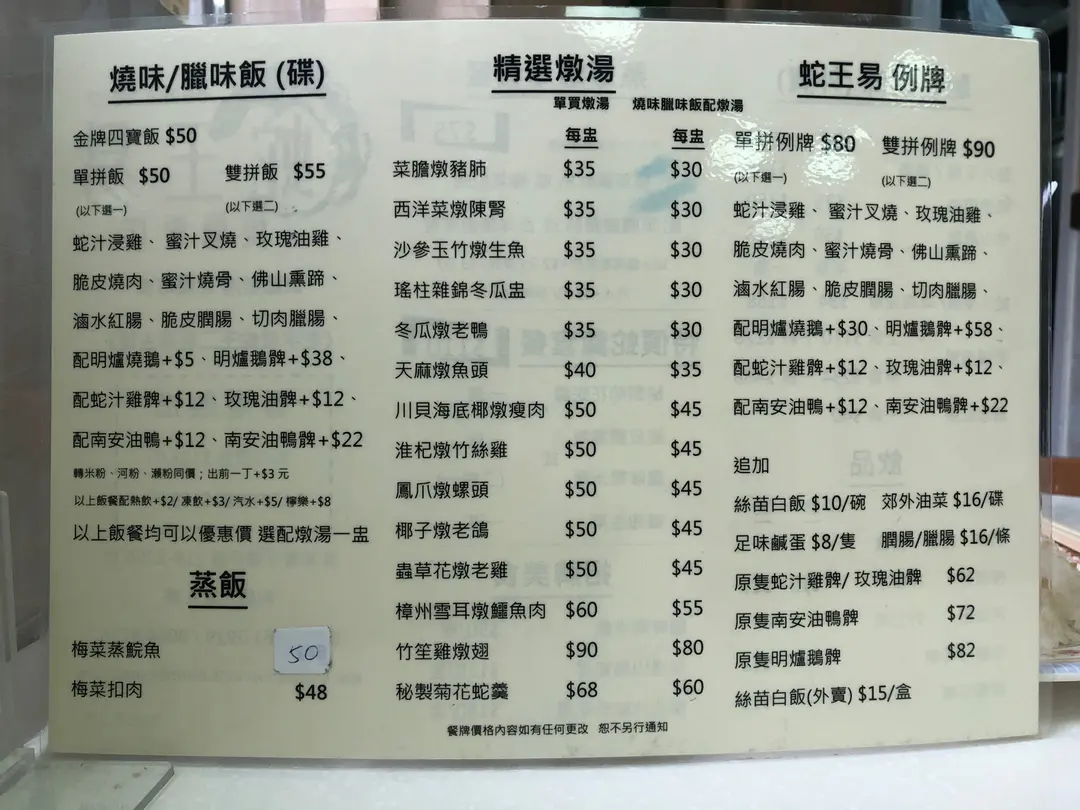 燒味/臘味飯 (碟)
金牌四寶飯 $50
單拼飯 $50 雙拼飯 $55
(以下選一) (以下選二)
蛇汁浸雞、蜜汁叉燒、玫瑰油雞、
脆皮燒肉、蜜汁燒骨、佛山熏蹄、
滷水紅腸、脆皮膶腸、切肉臘腸、
配明爐燒鵝+$5、明爐鵝髀+$38、
配蛇汁雞髀+$12、玫瑰油髀+$12、
配南安油鴨+$12、南安油鴨髀+$22
轉米粉、河粉、瀨粉同價；出前一丁+$3 元
以上飯餐配熱飲+$2/ 凍飲+$3/ 汽水+$5/ 檸樂+$8
以上飯餐均可以優惠價 選配燉湯一盅
蒸飯
梅菜蒸鯇魚 50
梅菜扣肉 $48
精選燉湯
單買燉湯 燒味臘味飯配燉湯
每盅 每盅
菜膽燉豬肺 $35 $30
西洋菜燉陳腎 $35 $30
沙參玉竹燉生魚 $35 $30
瑤柱雜錦冬瓜盅 $35 $30
冬瓜燉老鴨 $35 $30
天麻燉魚頭 $40 $35
川貝海底椰燉瘦肉 $50 $45
淮杞燉竹絲雞 $50 $45
鳳爪燉螺頭 $50 $45
椰子燉老鴿 $50 $45
蟲草花燉老雞 $50 $45
樟州雪耳燉鱷魚肉 $60 $55
竹笙雞燉翅 $90 $80
秘製菊花蛇羹 $68 $60
餐牌價格內容如有任何更改 恕不另行通知
蛇王易 例牌
單拼例牌 $80 雙拼例牌 $90
(以下選一) (以下選二)
蛇汁浸雞、蜜汁叉燒、玫瑰油雞、
脆皮燒肉、蜜汁燒骨、佛山熏蹄、
滷水紅腸、脆皮膶腸、切肉臘腸、
配明爐燒鵝+$30、明爐鵝髀+$58、
配蛇汁雞髀+$12、玫瑰油髀+$12、
配南安油鴨+$12、南安油鴨髀+$22
追加
絲苗白飯 $10/碗 郊外油菜 $16/碟
足味鹹蛋 $8/隻 膶腸/臘腸 $16/條
原隻蛇汁雞髀/ 玫瑰油髀 $62
原隻南安油鴨髀 $72
原隻明爐鵝髀 $82
絲苗白飯(外賣) $15/盒